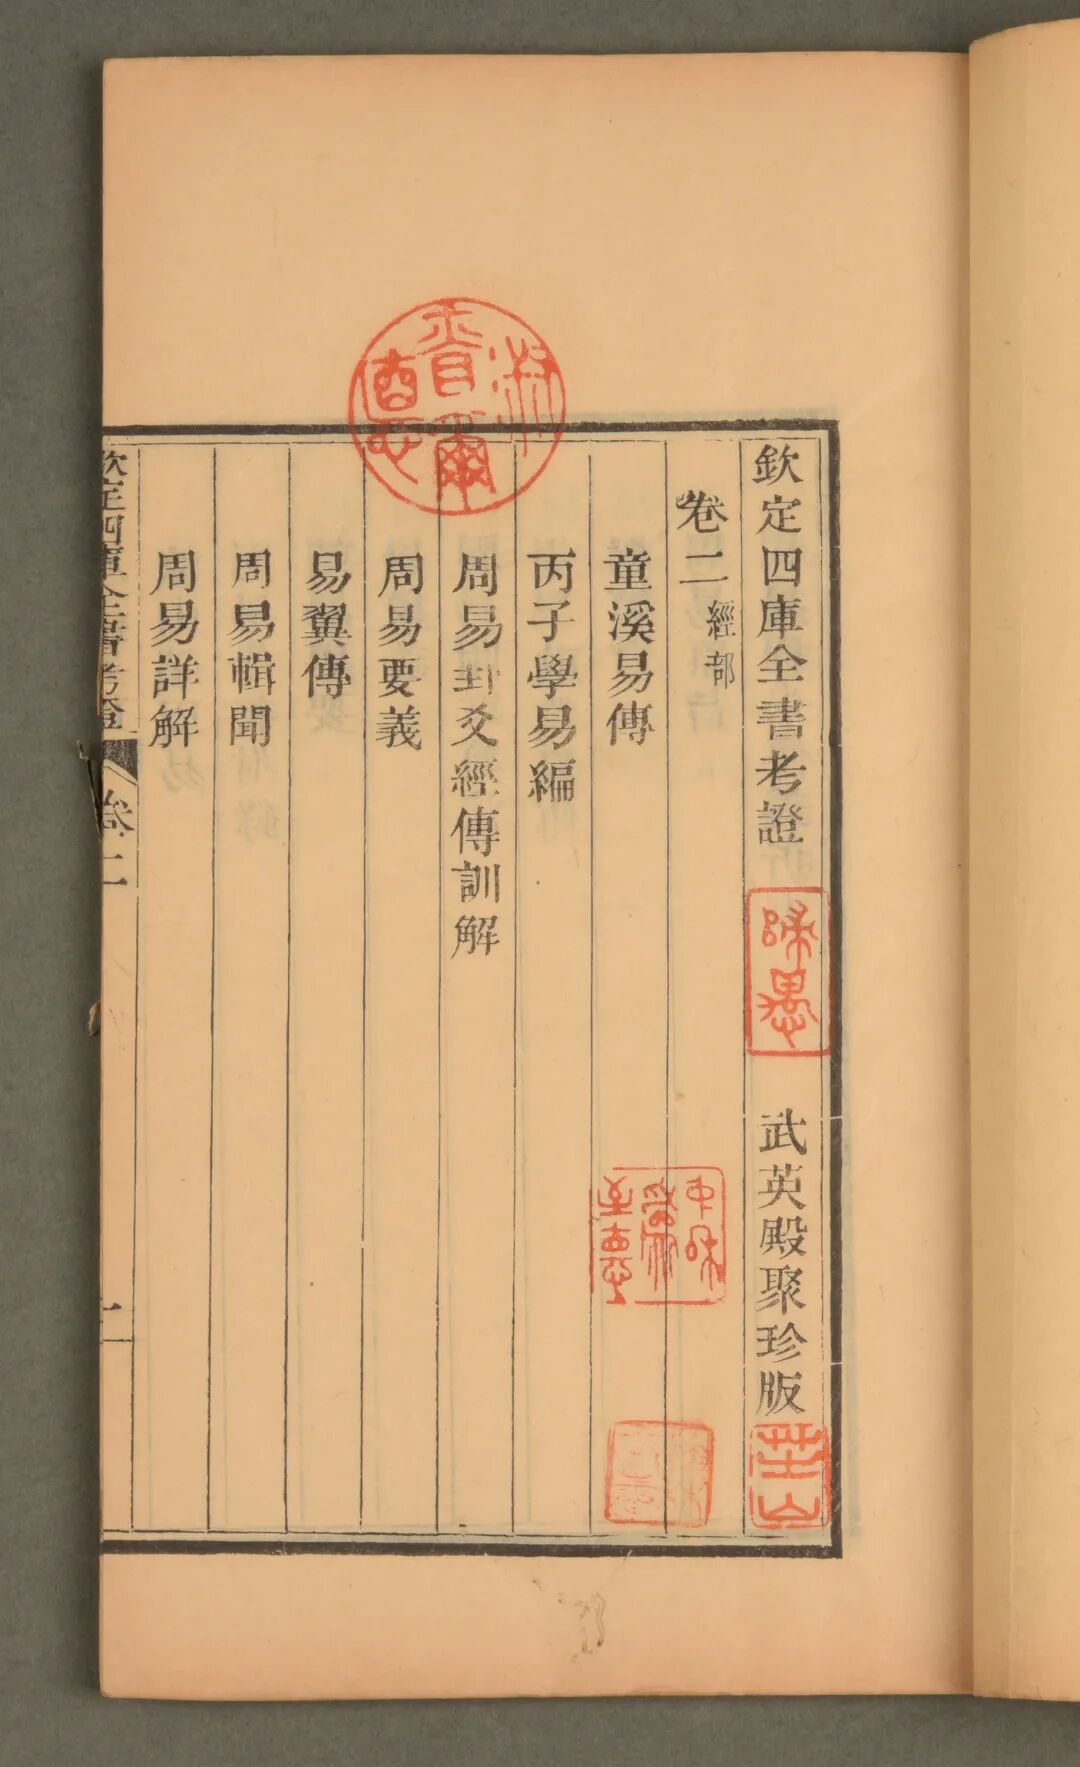 欽定四庫全書考證
武英殿聚珍版
卷二
經部
童溪易傳
丙子學易編
周易卦爻經傳訓解
周易要義
易翼傳
周易輯聞
周易詳解
欽定四庫全書考證
卷二